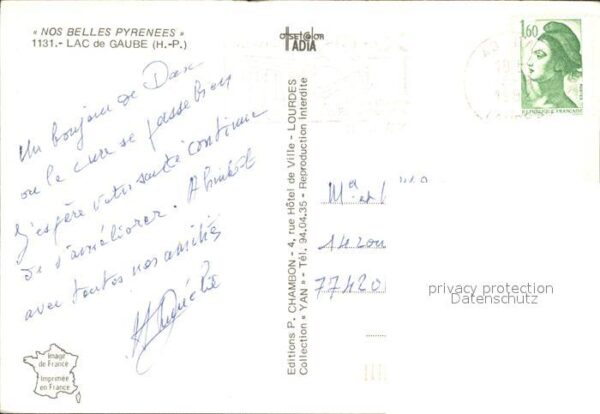 « NOS BELLES PYRENEES »
1131.- LAC de GAUBE (H.-P.)
OFFSET COLOR
IADIA
1,60
REPUBLIQUE FRANÇAISE
Un bonjour de Dax
ou la cure se passe bien
J'espère votre santé continue
de s'améliorer. A bientôt
avec toutes nos amitiés
Editions P. CHAMBON - 4, rue Hôtel de Ville - LOURDES
Collection « YAN » - Tél. 94.04.35 - Reproduction Interdite
M et
14
77420
privacy protection
Datenschutz
Image
de France
Imprimée
en France